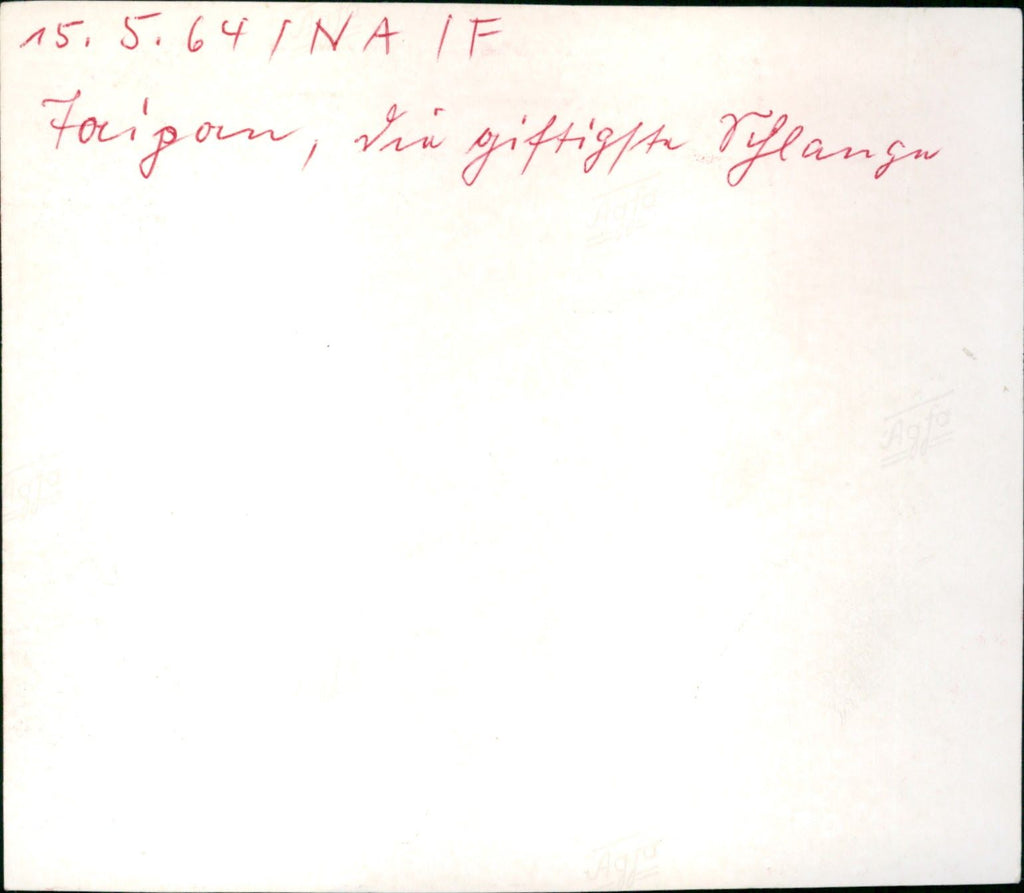 15. 5. 64 / NA / F
Taipan, die giftigste Schlange
Agfa
Agfa
Agfa